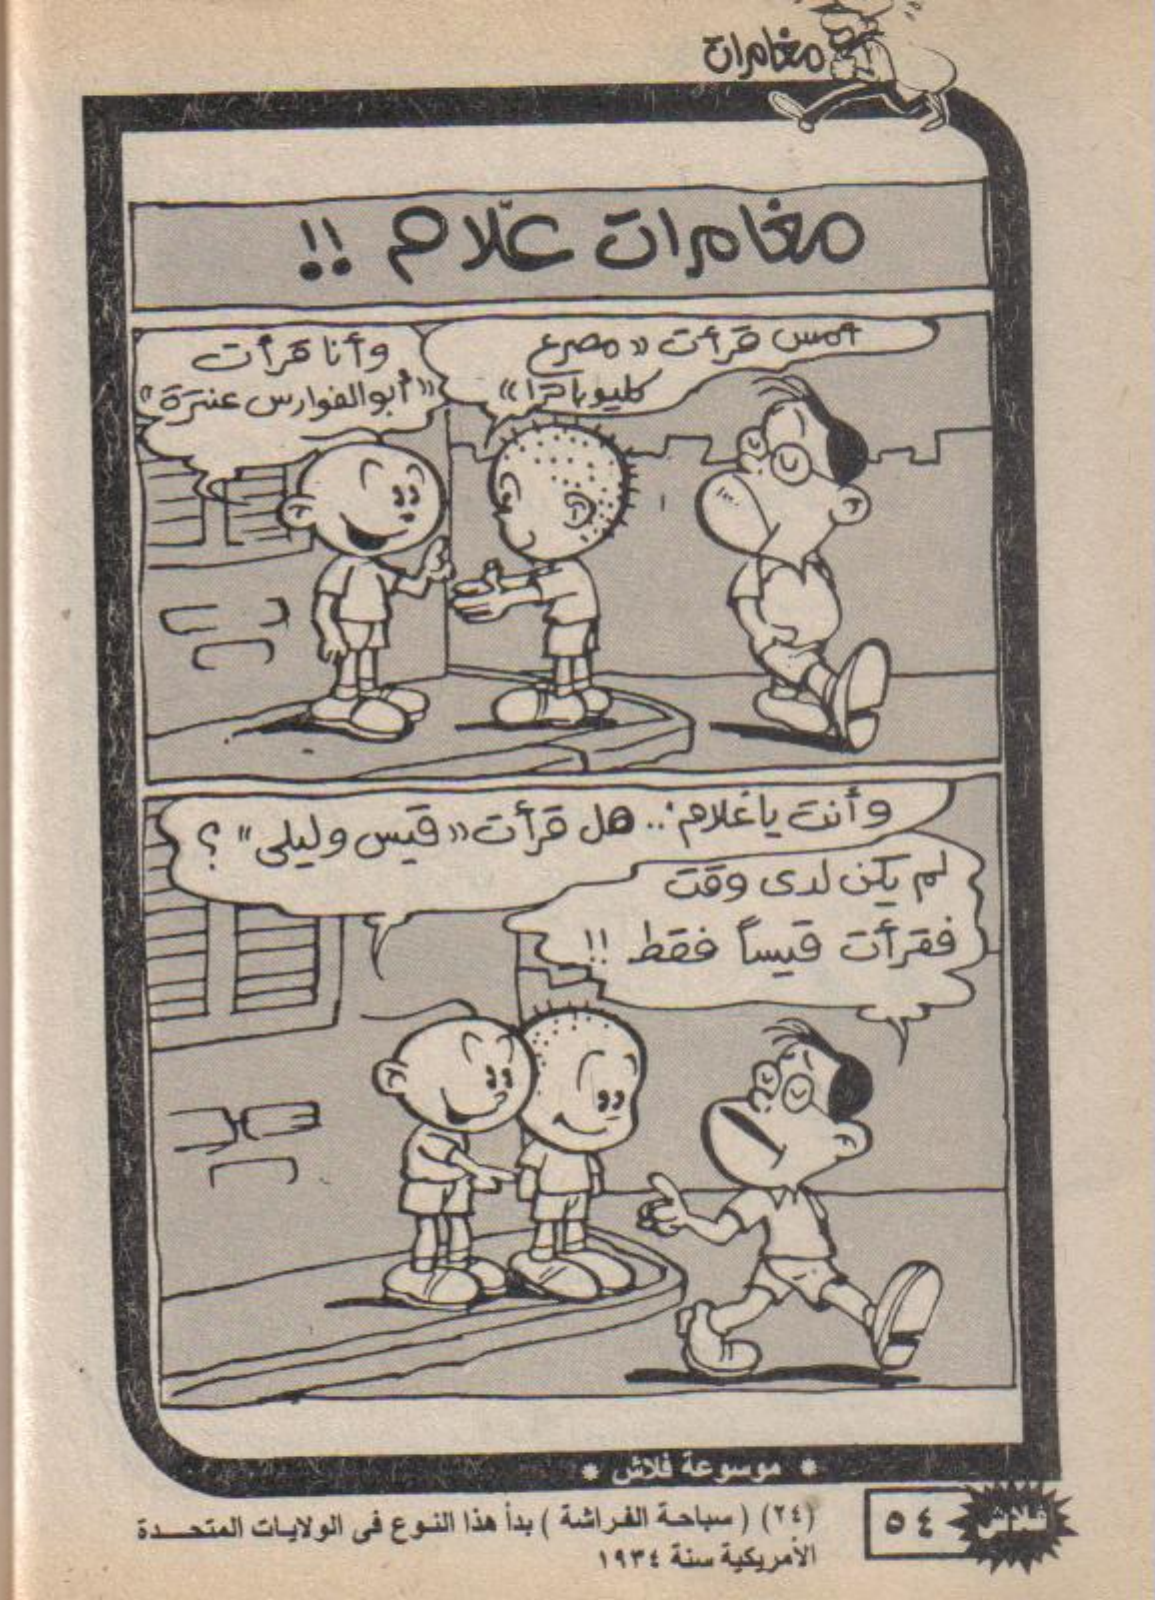 مغامرات
مغامرات علّام !!
أمس قرأت « مصرع
كليوباترا »
وأنا قرأت
« أبو الفوارس عنترة »
وأنت يا علام .. هل قرأت « قيس وليلى » ؟
لم يكن لدى وقت
فقرأت قيساً فقط !!
* موسوعة فلاش *
(٢٤) ( سباحة الفراشة ) بدأ هذا النوع فى الولايات المتحدة
الأمريكية سنة ١٩٣٤
٥٤
فلاش